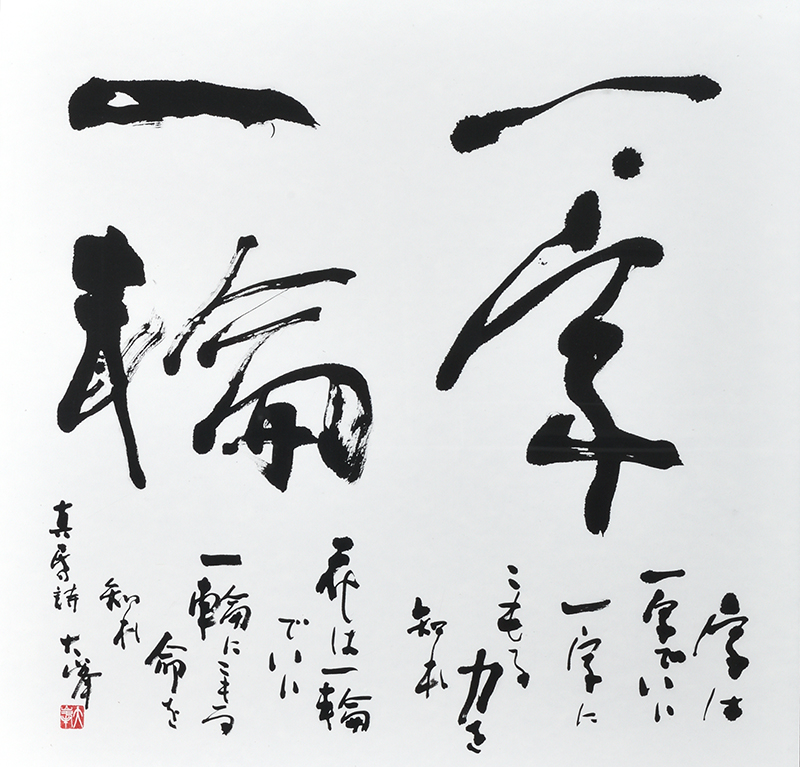 一字
一輪
字は
一字でいい
一字に
こもる
力を
知れ
花は一輪
でいい
一輪にこもる
命を
知れ
真民詩 大峯